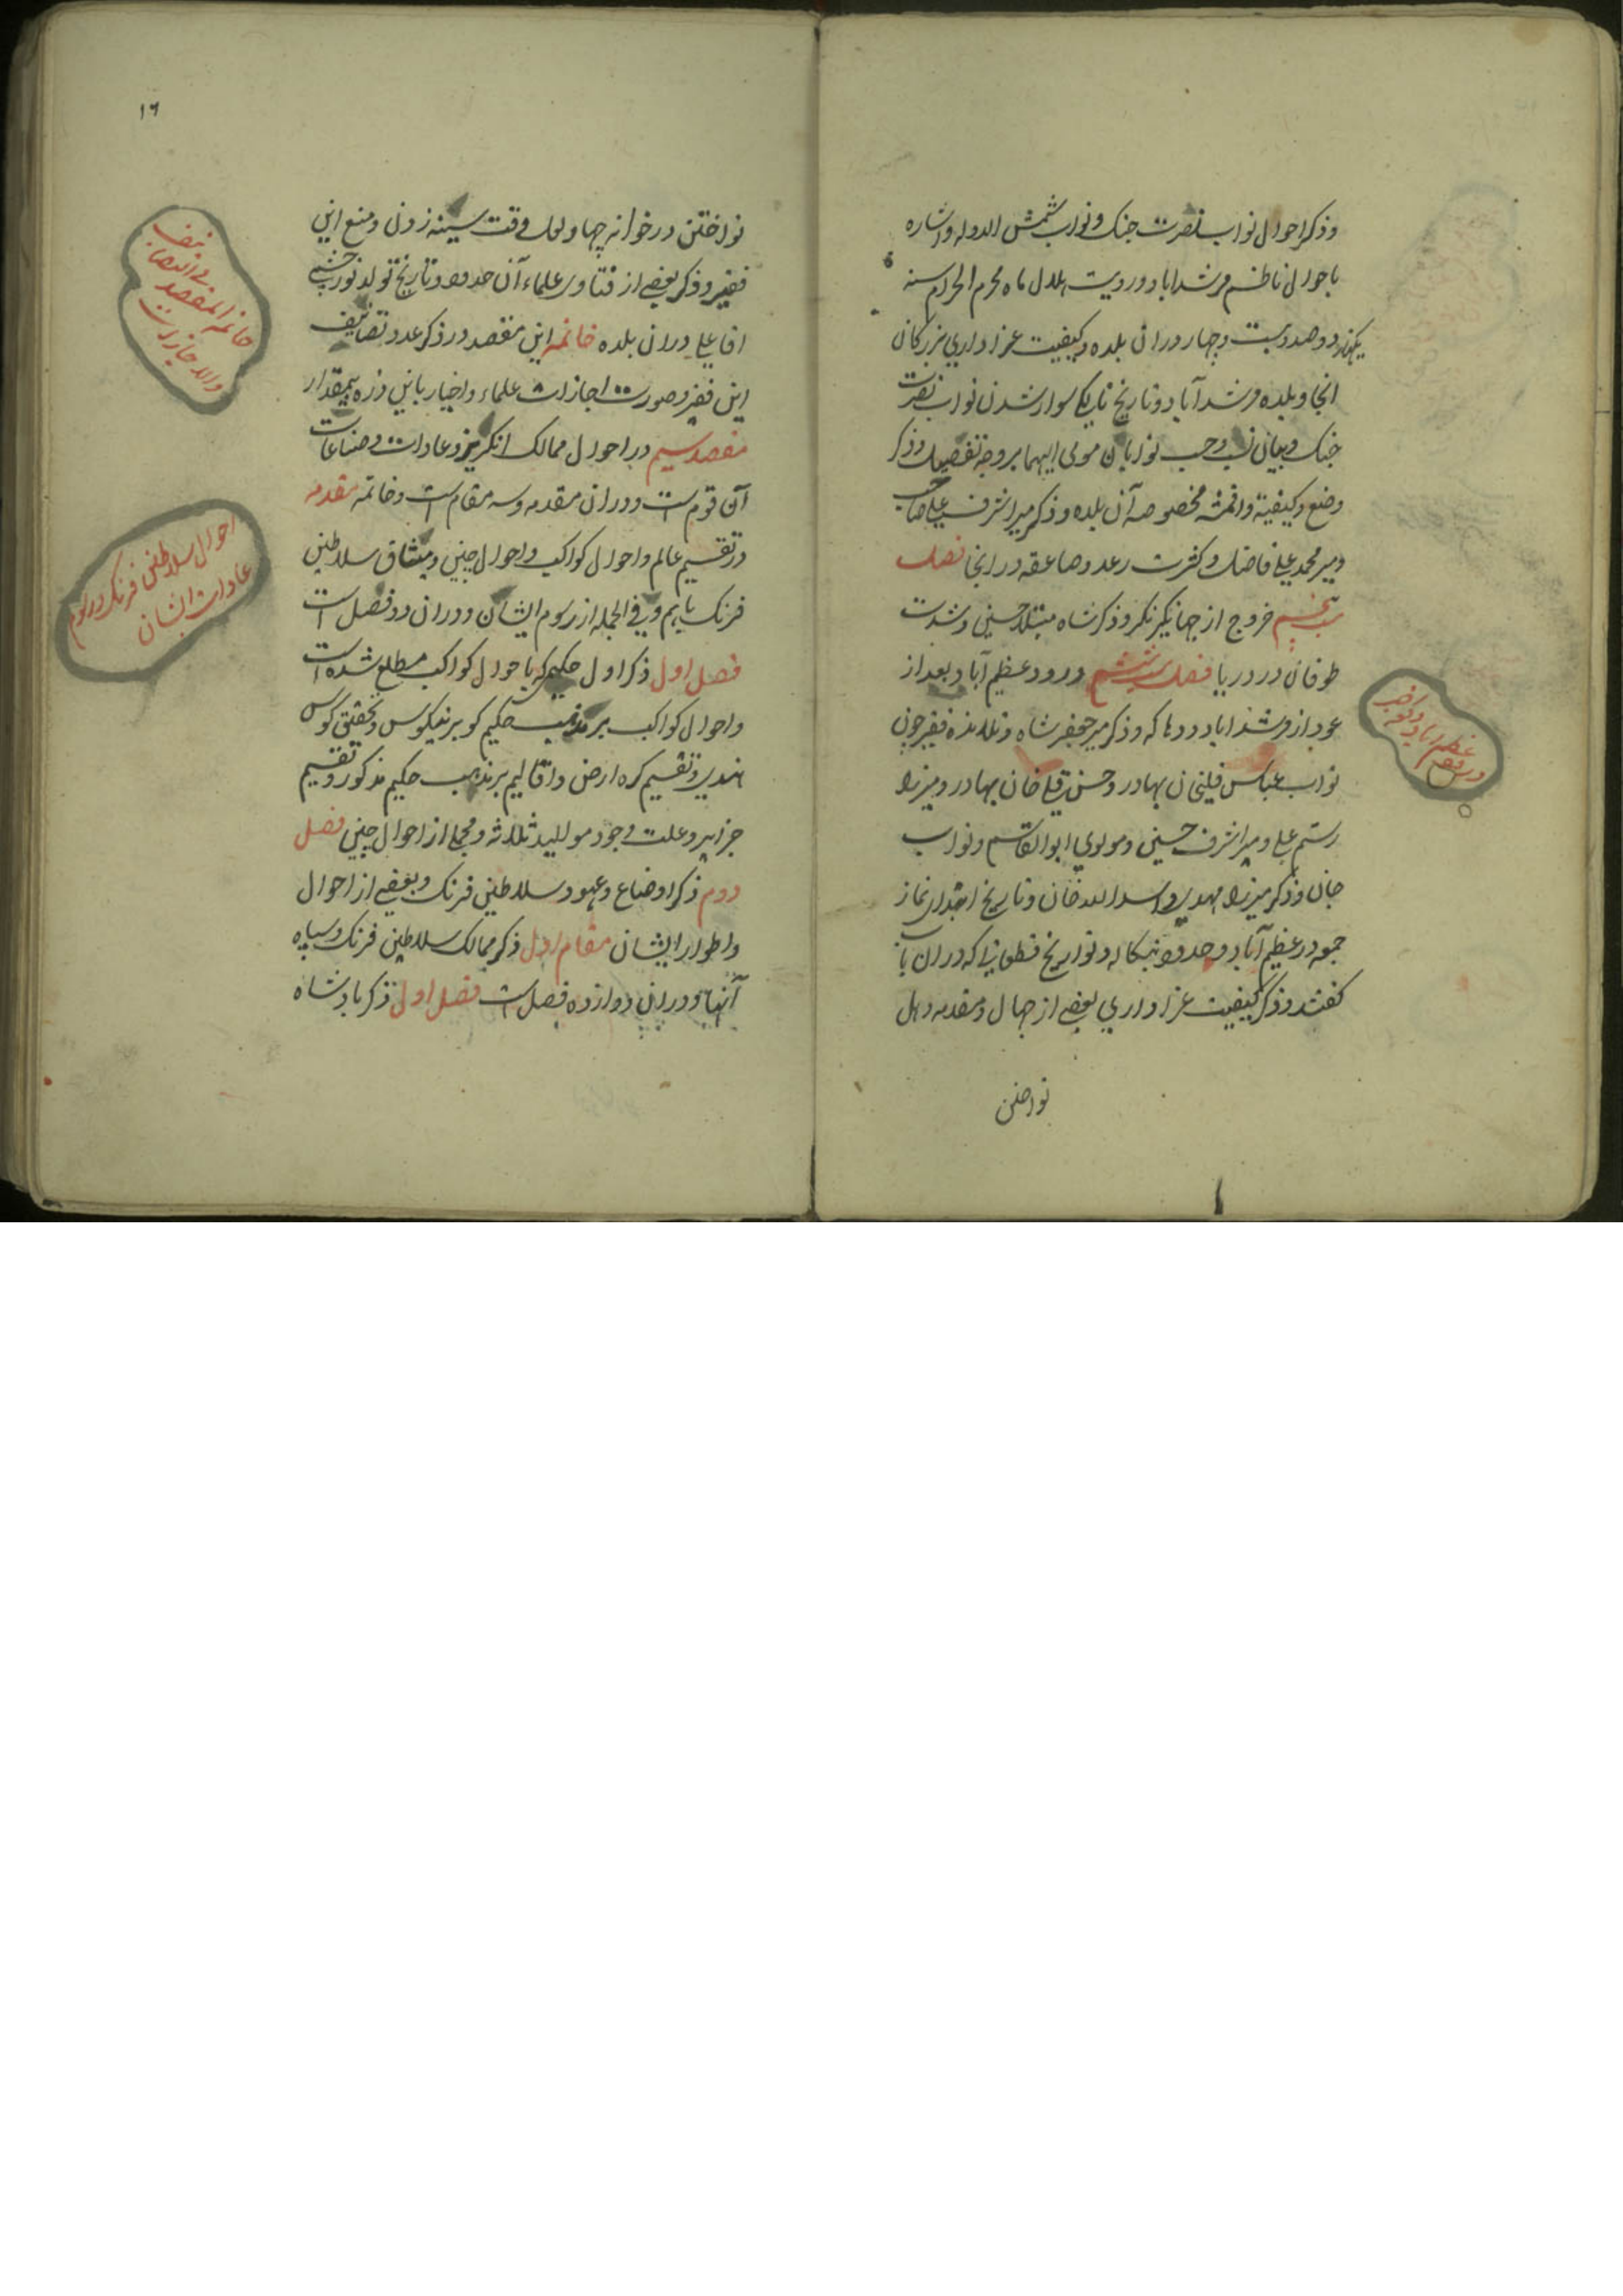 وذکر احوال نواب نصرت جنک ونواب شمش الدوله واشاره
باحوال ناظم مرشداباد ورویت هلال ماه محرم الحرام سنه
یکهزار ودوصد وبیست وچهار دران بلده وکیفیت عزاداری بزرکان
انجا وبلده مرشدآباد وتاریخ تاریکی سوار شدن نواب نصرت
جنک وبیان نسب وحسب نوابان مومی الیهما بروجه تفصیل وذکر
وضع وکیفیة واقمشه مخصوصه آن بلده وذکر میر اشرف علی صاحب
ومیر محمد علی فاضل وکثرت رعد وصاعقه درانجا فصل
پنجم خروج از جهانیکرنکر وذکر شاه مبتلا حسینی وشدت
طوفان در دریا فصل ششم ورود عظیم آباد بعد از
عود از مرشداباد ودهاکه وذکر میر جعفر شاه وتلامذه فقیر چون
نواب عباس قلیخان بهادر وحسن قلی خان بهادر ومیرزا
رستم علی ومیر اشرف حسینی ومولوی ابوالقاسم ونواب
جان وذکر میرزا مهدی واسد الله خان وتاریخ ابتدای نماز
جمعه در عظیم آباد وحدود بنکاله وتواریخ قطعهائی که دران باب
کفتند وذکر کیفیت عزاداری بعضی از جهال ومقدمه دهل
نواختن
در عظیم اباد
۱۶
نواختن در خوانه چهاولک وقت سینه زدن ومنع این
فقیر وذکر بعضی از فتاوی علماء آن حدود وتاریخ تولد نورچشمی
اقا علی دران بلده خاتمه این مقصد در ذکر عدد تصانیف
این فقیر وصورت اجازات علماء واخیار باین ذره بیمقدار
مقصد سیم در احوال ممالک انکریز وعادات وصناعات
آن قوم است ودران مقدمه وسه مقام است وخاتمه مقدمه
در تقسیم عالم واحوال کواکب واحوال چین ومیثاق سلاطین
فرنک باهم وفی الجمله از رسوم ایشان ودران دو فصل است
فصل اول ذکر اول حکیمی که باحوال کواکب مطلع شده است
واحوال کواکب بر مذهب حکیم کوبرنیکوس وتحقیق کوس
هندی وتقسیم کره ارض واقالیم بر مذهب حکیم مذکور وتقسیم
جزایر وعلت وجود موالید ثلاثه ومجملی از احوال چین فصل
دوم ذکر اوضاع وعهود سلاطین فرنک وبعضی از احوال
واطوار ایشان مقام اول ذکر ممالک سلاطین فرنک وسپاه
آنها ودران دوازده فصل است فصل اول ذکر پادشاه
خاتمه المقصد
فی التصانیف
والاجازات
احوال سلاطین فرنک ورسوم
عادات ایشان